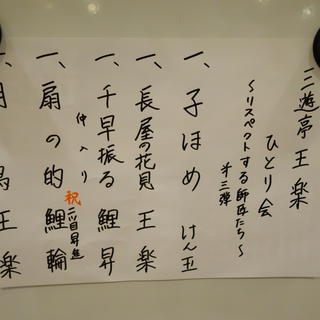 三遊亭王楽
ひとり会
〜リスペクトする師匠たち〜
第三弾
一、子ほめ けん玉
一、長屋の花見 王楽
一、千早振る 鯉昇
仲入り
祝 二ツ目昇進
一、扇の的 鯉輪
王楽